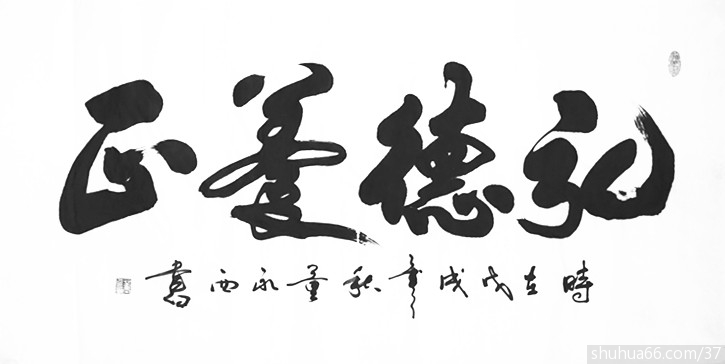 礼德養正
時在戊戌年秋董永西書
shuhua66.com/37